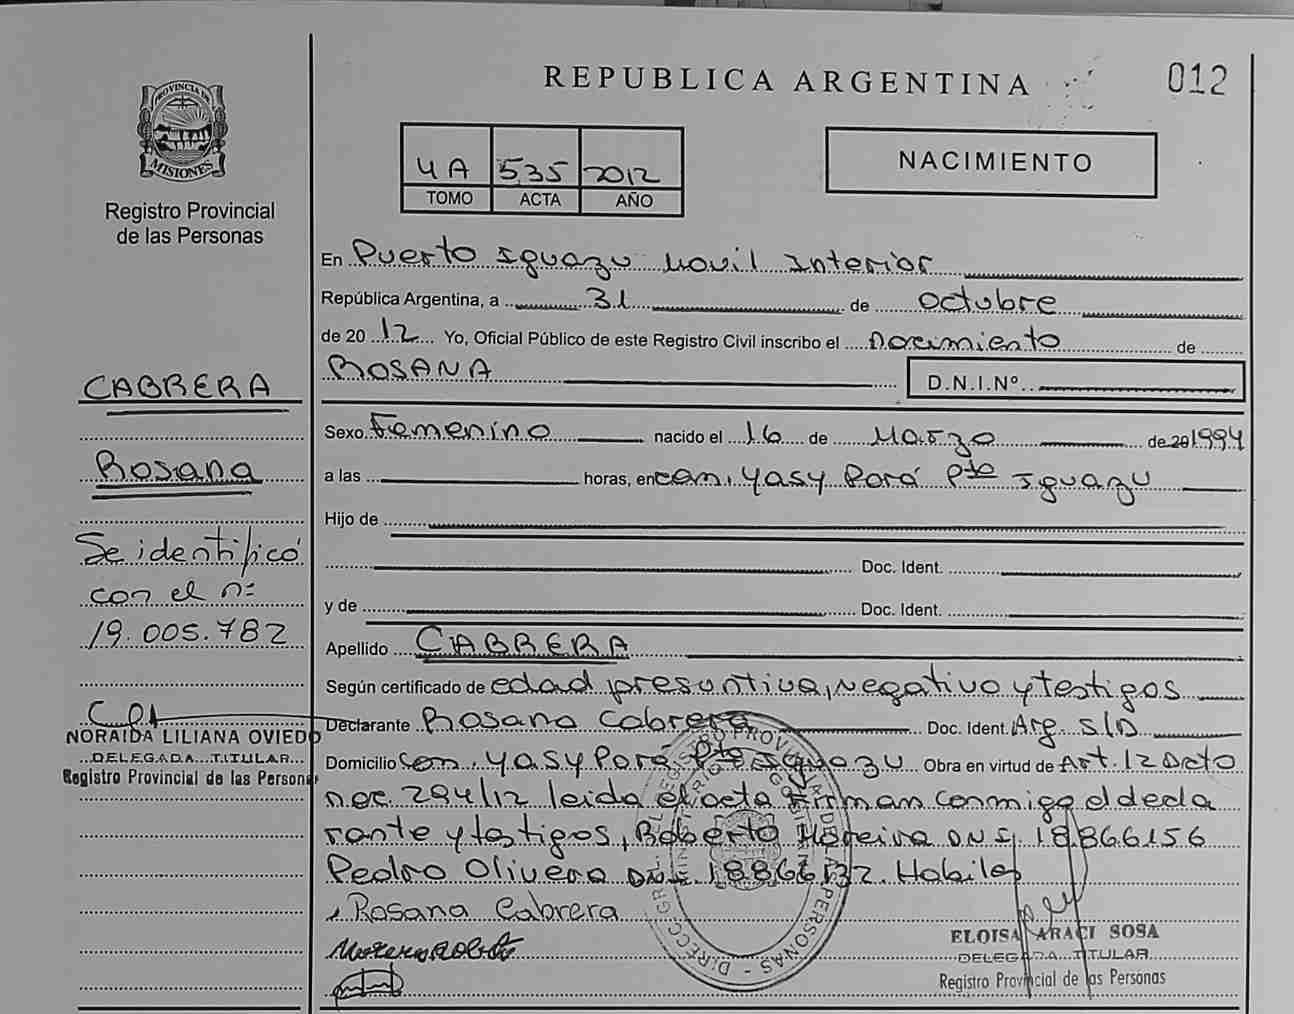 REPUBLICA ARGENTINA
012
PROVINCIA DE
MISIONES
Registro Provincial
de las Personas
4A 535 2012
TOMO ACTA AÑO
NACIMIENTO
En Puerto Iguazu Movil Interior
República Argentina, a 31 de octubre
de 2012 Yo, Oficial Público de este Registro Civil inscribo el nacimiento de
ROSANA
D.N.I.Nº
CABRERA
Rosana
Se identificó
con el nº
19.005.782
NORAIDA LILIANA OVIEDO
DELEGADA TITULAR
Registro Provincial de las Persona
Sexo Femenino nacido el 16 de Marzo de 201994
a las horas, en com. Yasy Porá Pto Iguazu
Hijo de
Doc. Ident.
y de Doc. Ident.
Apellido CABRERA
Según certificado de edad presuntiva, negativo y testigos
Declarante Rosana Cabrera Doc. Ident. Arg. S/D
Domicilio com. Yasy Porá Pto Iguazu Obra en virtud de Art. 12 Dcto
nac. 294/12 leida el acta firman conmigo el decla
rante y testigos, Roberto Moreira DNI. 18.866156
Pedro Olivera DNI 18866132. Habiles
Rosana Cabrera
ELOISA ARACI SOSA
DELEGADA TITULAR
Registro Provincial de las Personas